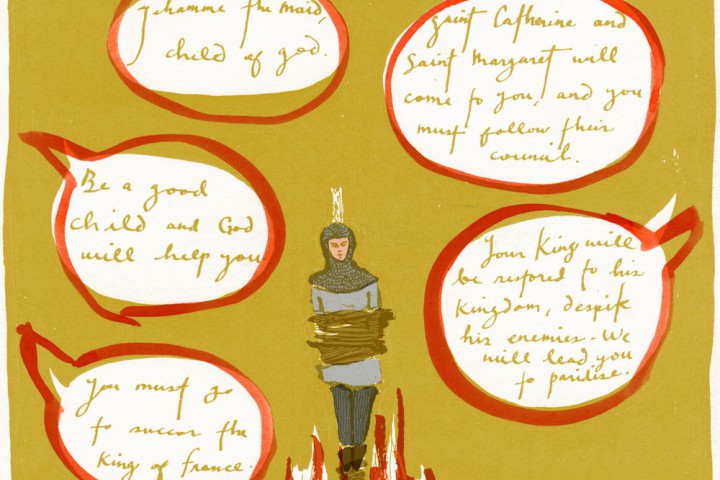 Jehamme the maid,
child of god.
Saint Catherine and
Saint Margaret will
come to you, and you
must follow their
council.
Be a good
child and God
will help you
Your King will
be restored to his
Kingdom, despite
his enemies - We
will lead you
to
You must go
to succor the
King of France.